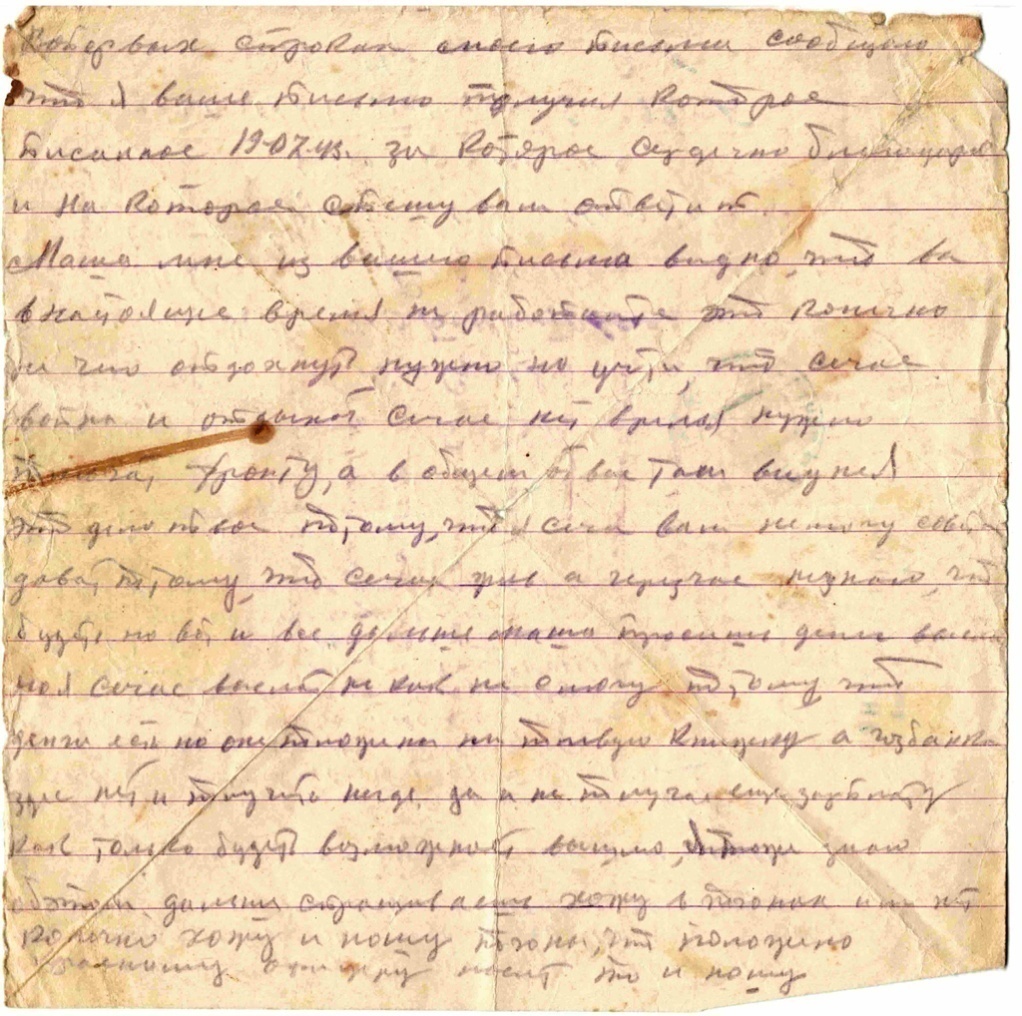 Вопервых строках моего письма сообщаю
что я ваше письмо получил которое
писанное 19-07.43. за которое сердечно благодарю
и на которое спешу вам ответит.
Маша мне из вашего письма видно, что вы
в настоящее время не работаите это конечно
отдохнуть нужно но учти, что сечас
война и отдыхат сечас нет время нужно
помогат фронту, а в общем
это дело твое потому, что я сечас вам немогу совето
дават потому, что сечас жив а чересчас незнаю, что
будет но вот и все дальше маша просиш денег
но я сечас выслат не как не смогу потому, что
денги есть но они положины на книжку а банка
здес нет и получить негде, да и не получал еще зарплату
как только будет возможност вышлю, знаю
обэтом дальше спрашиваеш хожу в погонах или нет
конечно хожу и ношу погоны, что положено
носит то и ношу